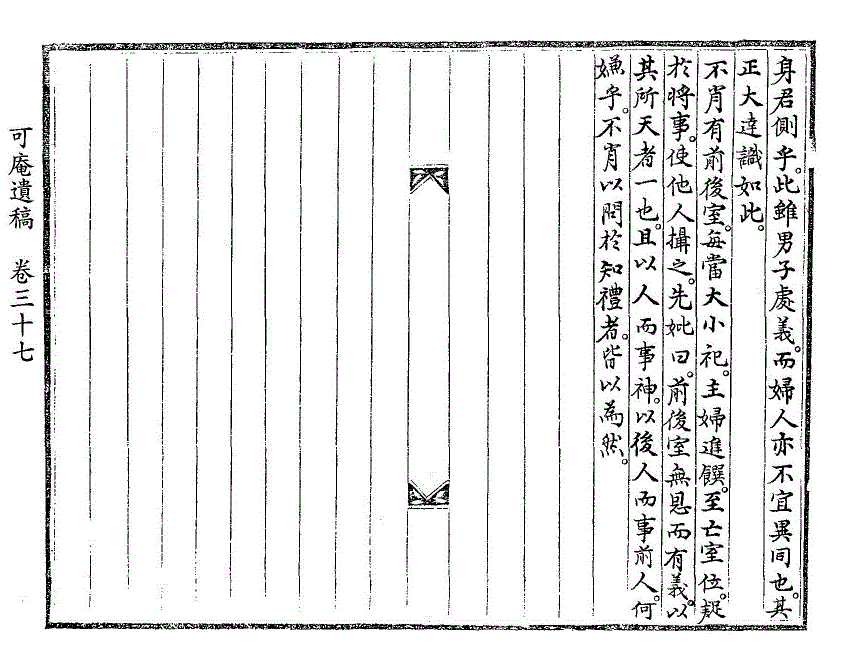 身君側乎。此雖男子處義。而婦人亦不宜異同也。其
正大達識如此。
不肖有前後室。每當大小祀。主婦進饌。至亡室位。疑
於將事。使他人攝之。先妣曰。前後室無恩而有義。以
其所天者一也。且以人而事神。以後人而事前人。何
嫌乎。不肖以問於知禮者。皆以爲然。
可庵遺稿 卷三十七